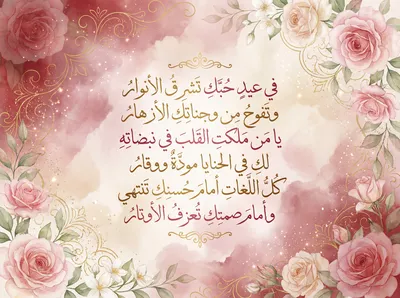 في عيدِ حُبِّكِ تَشرقُ الأنوارُ
وتَفوحُ مِن وجناتِكِ الأزهارُ
يا مَن مَلكتِ القلبَ في نبضاتهِ
لكِ في الحنايا مودَّةٌ ووقارُ
كُلُّ اللَّغاتِ أمامَ حُسنِكِ تَنتهي
وأمامَ صمتِكِ تُعزفُ الأوتارُ